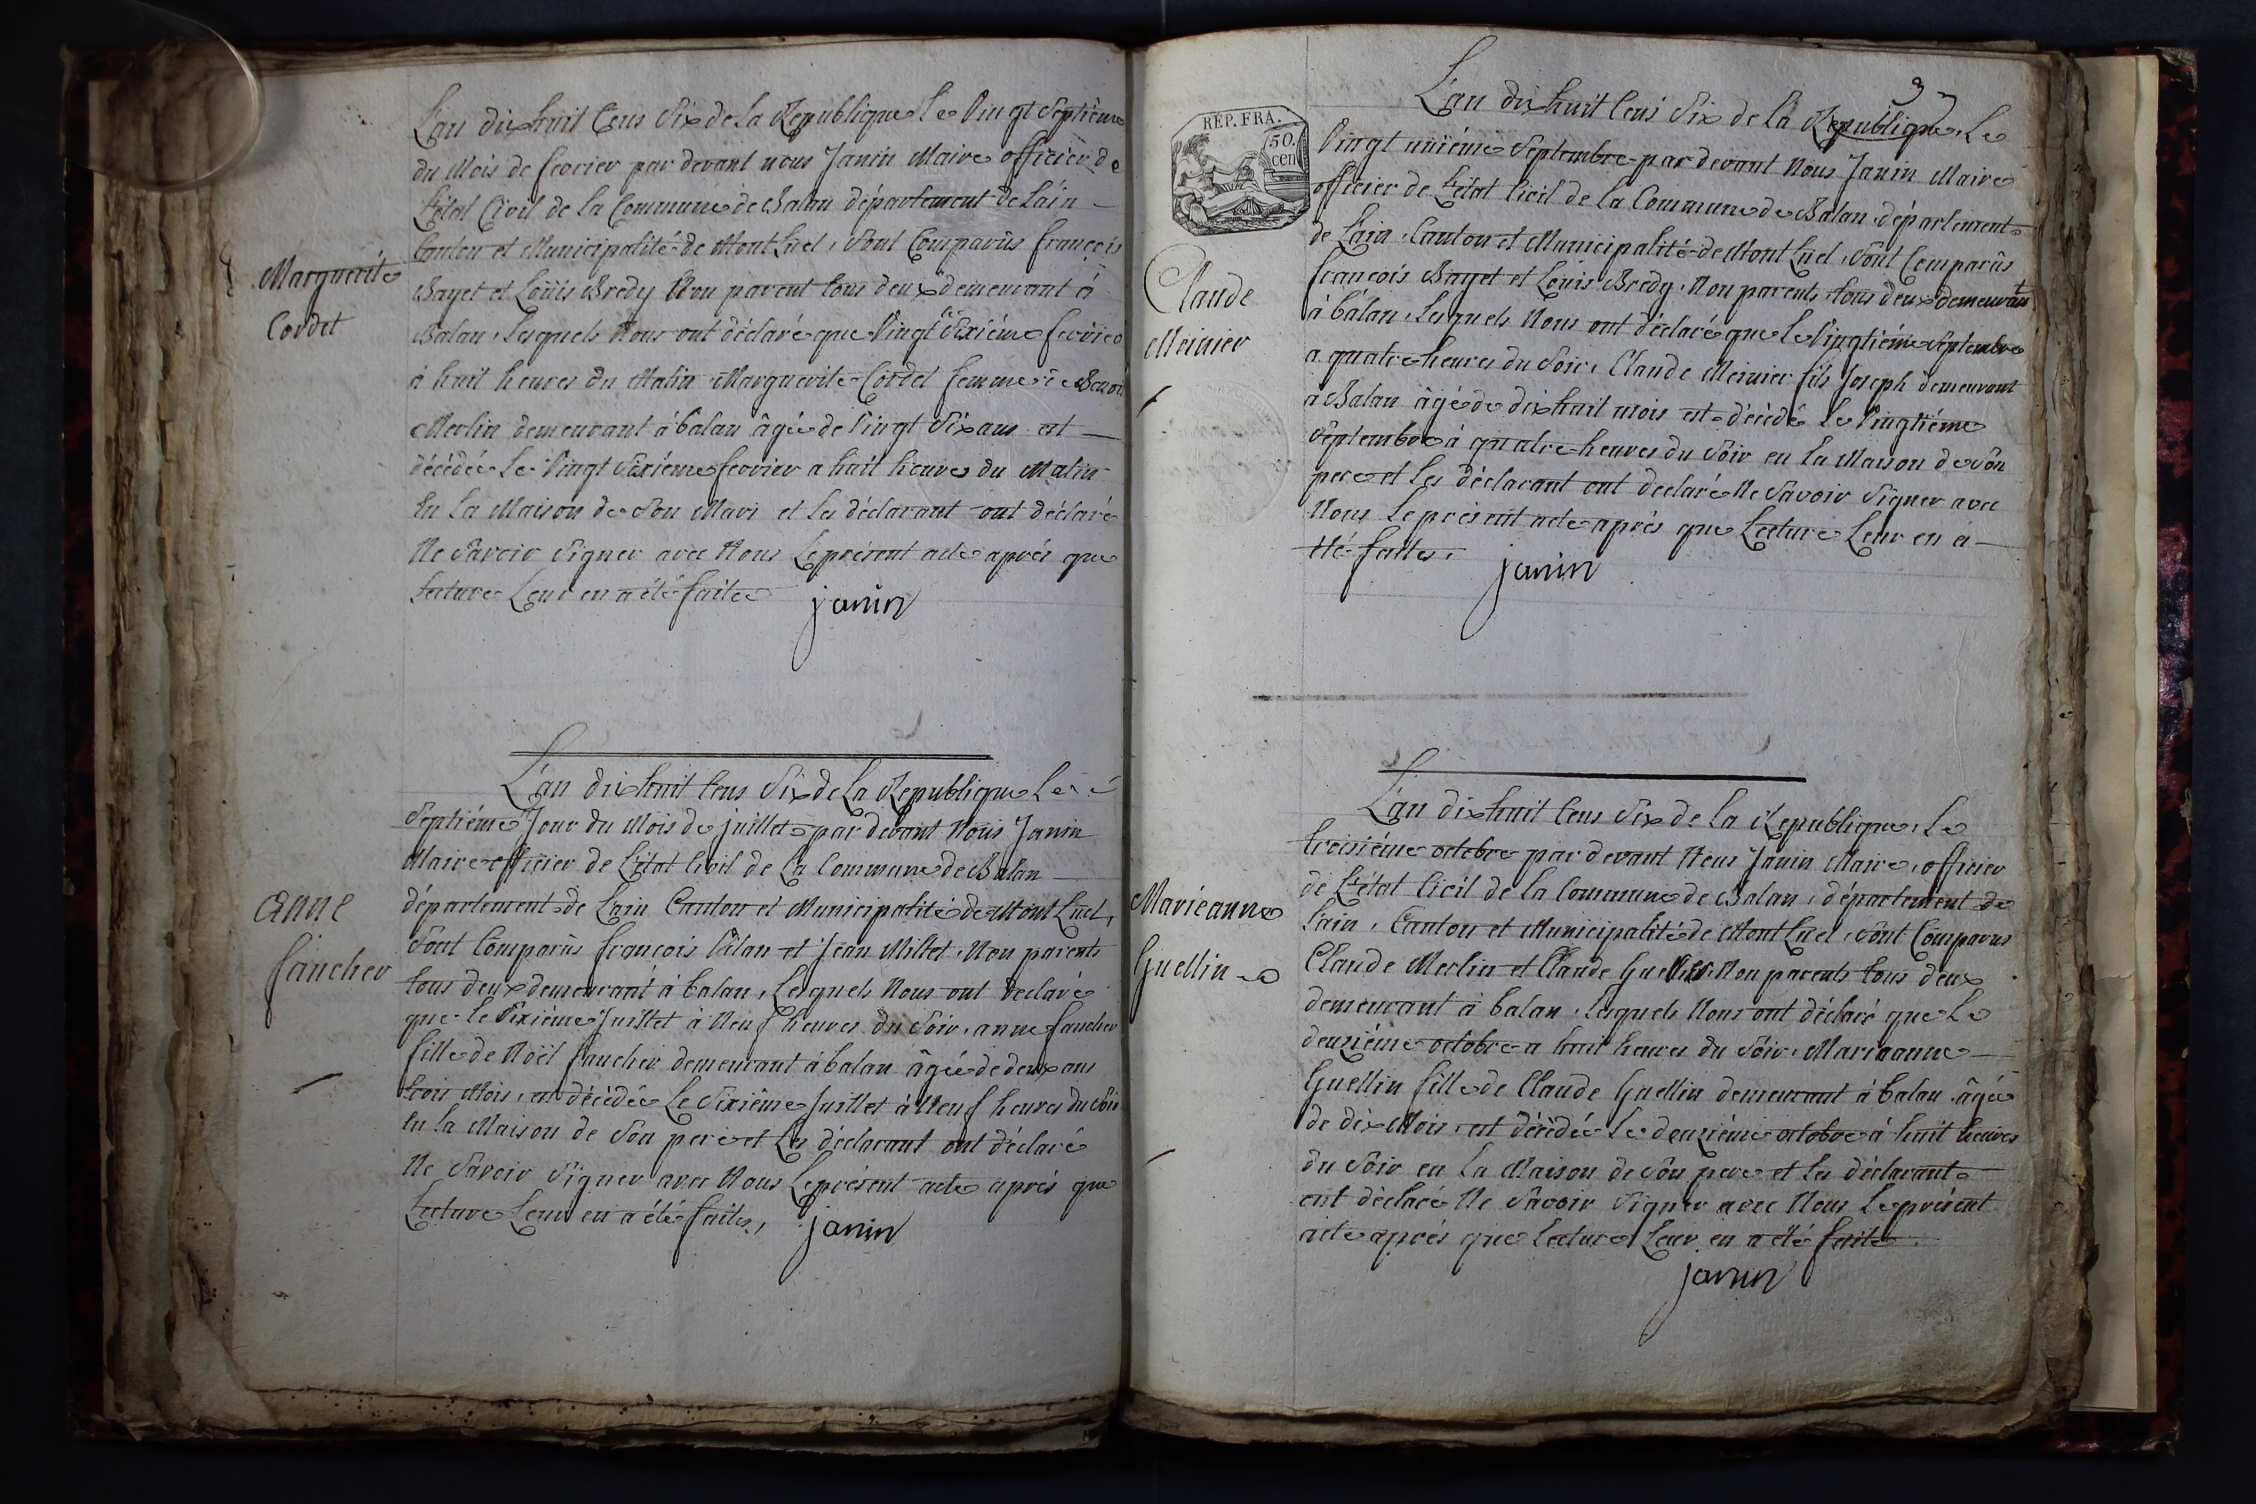 L'an dix huit Cens Six de la Republique Le Vingt Septiéme
du Mois de fevrier par devant nous Janin Maire officier de
L'état Civil de la Commune de Balan département de Lain
Canton et Municipalité de MontLüel, Sont Comparûs françois
Bayet et Loüis Bredy Non parent tous deux demeurant à
Balan, Lesquels Nous ont déclaré que Vingt Sixiéme fevrier
à huit heures du Matin Marguerite Cordet femme de Benoit
Merlin demeurant á balan âgée de Vingt Six ans est
décédée Le Vingt Sixiéme fevrier a huit heures du Matin
En La Maison de Son Mari et Les déclarant ont déclaré
Ne Savoir Signer avec Nous Le présent acte aprés que
Lecture Leur en a été faite janin
Marguerite
Cordet
L'an dix huit Cens Six de La Republique Le
Septiéme Jour du Mois de juillet par devant Nous Janin
Maire officier de L'état Civil de La Commune de Balan
département de Lain Canton et Municipalité de MontLüel,
Sont Comparûs françois Câlan et Jean Millet, Non parents
tous deux demeurant à balan, Lesquels Nous ont declaré
que Le Sixiéme Juillet à Neuf heures du Soir, anne faucher
fille de Noël faucher demeurant à balan âgée de deux ans
trois Mois, est décédée Le Sixiéme Juillet à Neuf heures du Soir
En La Maison de Son pere et Les déclarant ont déclaré
Ne Savoir Signer avec Nous Le présent acte aprés que
Lecture Leur en a été faite, janin
anne
faucher
3
REP. FRA.
50.
cen
L'an dix huit Cens Six de La Republique, Le
Vingt uniéme Septembre par devant Nous Janin Maire
officier de L'état Civil de la Commune de Balan, département
de Lain, Canton et Municipalité de MontLüel, Sont Comparûs
françois Bayet et Louis Bredy, Non parents tous deux demeurant
à bálan, Lesquels Nous ont déclaré que Le Vingtiéme Septembre
a quatre heures du Soir, Claude Meinier fils Joseph demeurant
à Balan âgé de dix huit mois est décédé Le Vingtiéme
Septembre à quatre heures du Soir en La Maison de Son
pere et Les déclarant ont declaré Ne Savoir Signer avec
Nous Le présent acte aprés que Lecture Leur en a
été faite, janin
Claude
Meinier
L'an dix huit Cens Six de la Republique, Le
troisiéme octobre par devant Nous Janin Maire, officier
de L'état Civil de la Commune de Balan, département de
Lain, Canton et Municipalité de MontLüel, Sont Comparus
Claude Merlin et Claude Non parents tous deux
demeurant à balan, Lesquels Nous ont déclaré que Le
deuxiéme octobre a huit heures du Soir, Marieanne
Guellin fille de Claude Guellin demeurant à balan, âgée
de dix Mois, est décédée Le deuxiéme octobre á huit heures
du Soir en La Maison de Son pere et Les déclarant
ont déclaré Ne Savoir Signer avec Nous Le présent
acte aprés que Lecture Leur en a été faite.
janin
Marieanne
Guellin